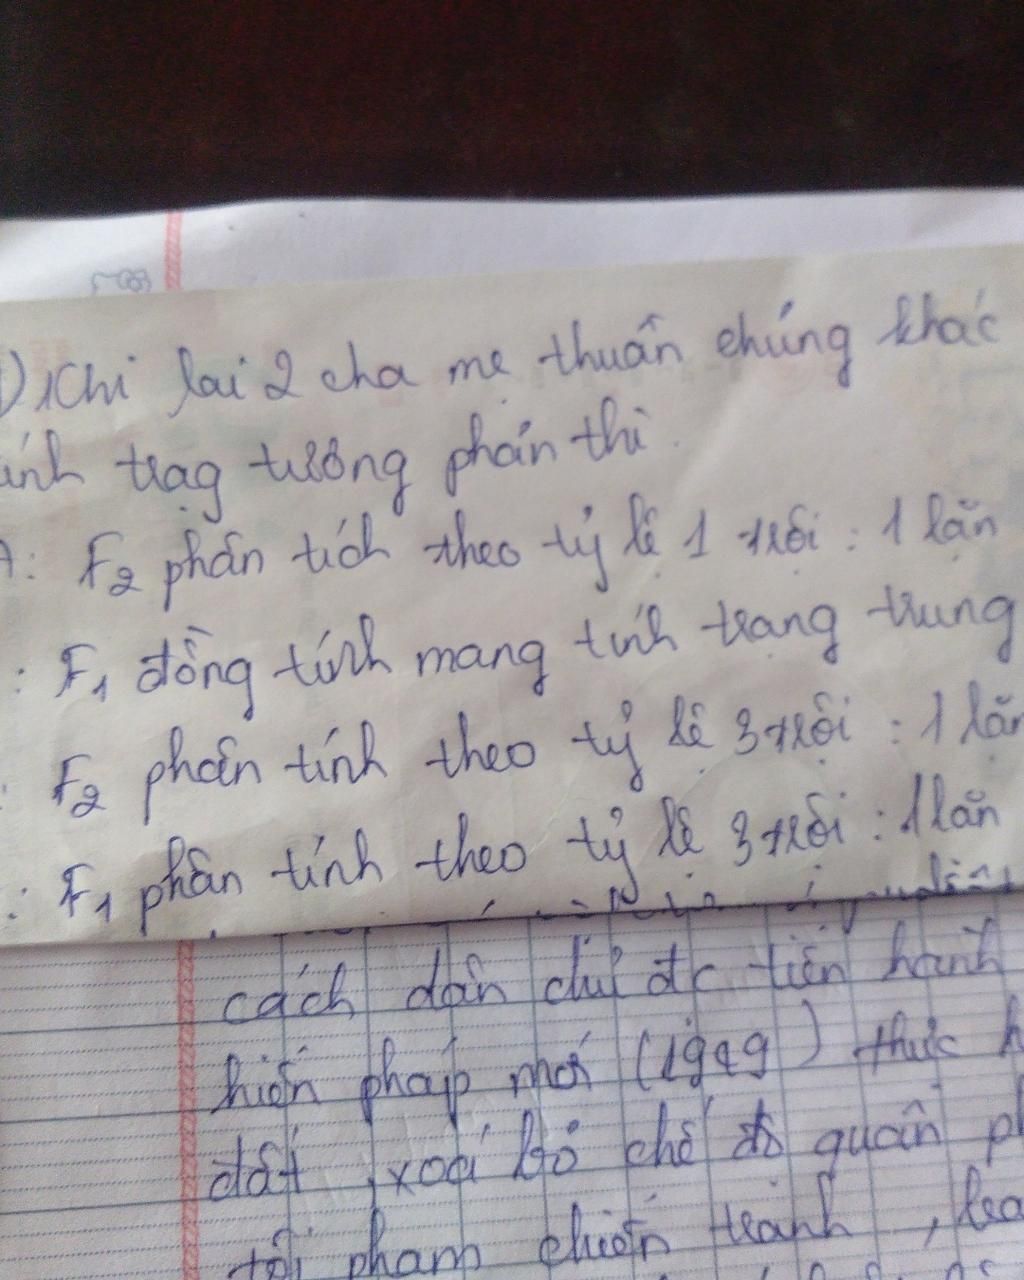 ) Khi lai 2 cha mẹ thuần chủng khác
ính trạg tương phản thì.
A: F2 phân tích theo tỷ lệ 1 trội : 1 lặn
: F1 đồng tính mang tính trạng trung
: F2 phân tính theo tỷ lệ 3 trội : 1 lặn
: F1 phân tính theo tỷ lệ 3 trội : 1 lặn
cách dân chủ đc tiến hành
hiến pháp mới (1949) thực h
đất, xoá bỏ chế độ quân ph
tội phạm chiến tranh,